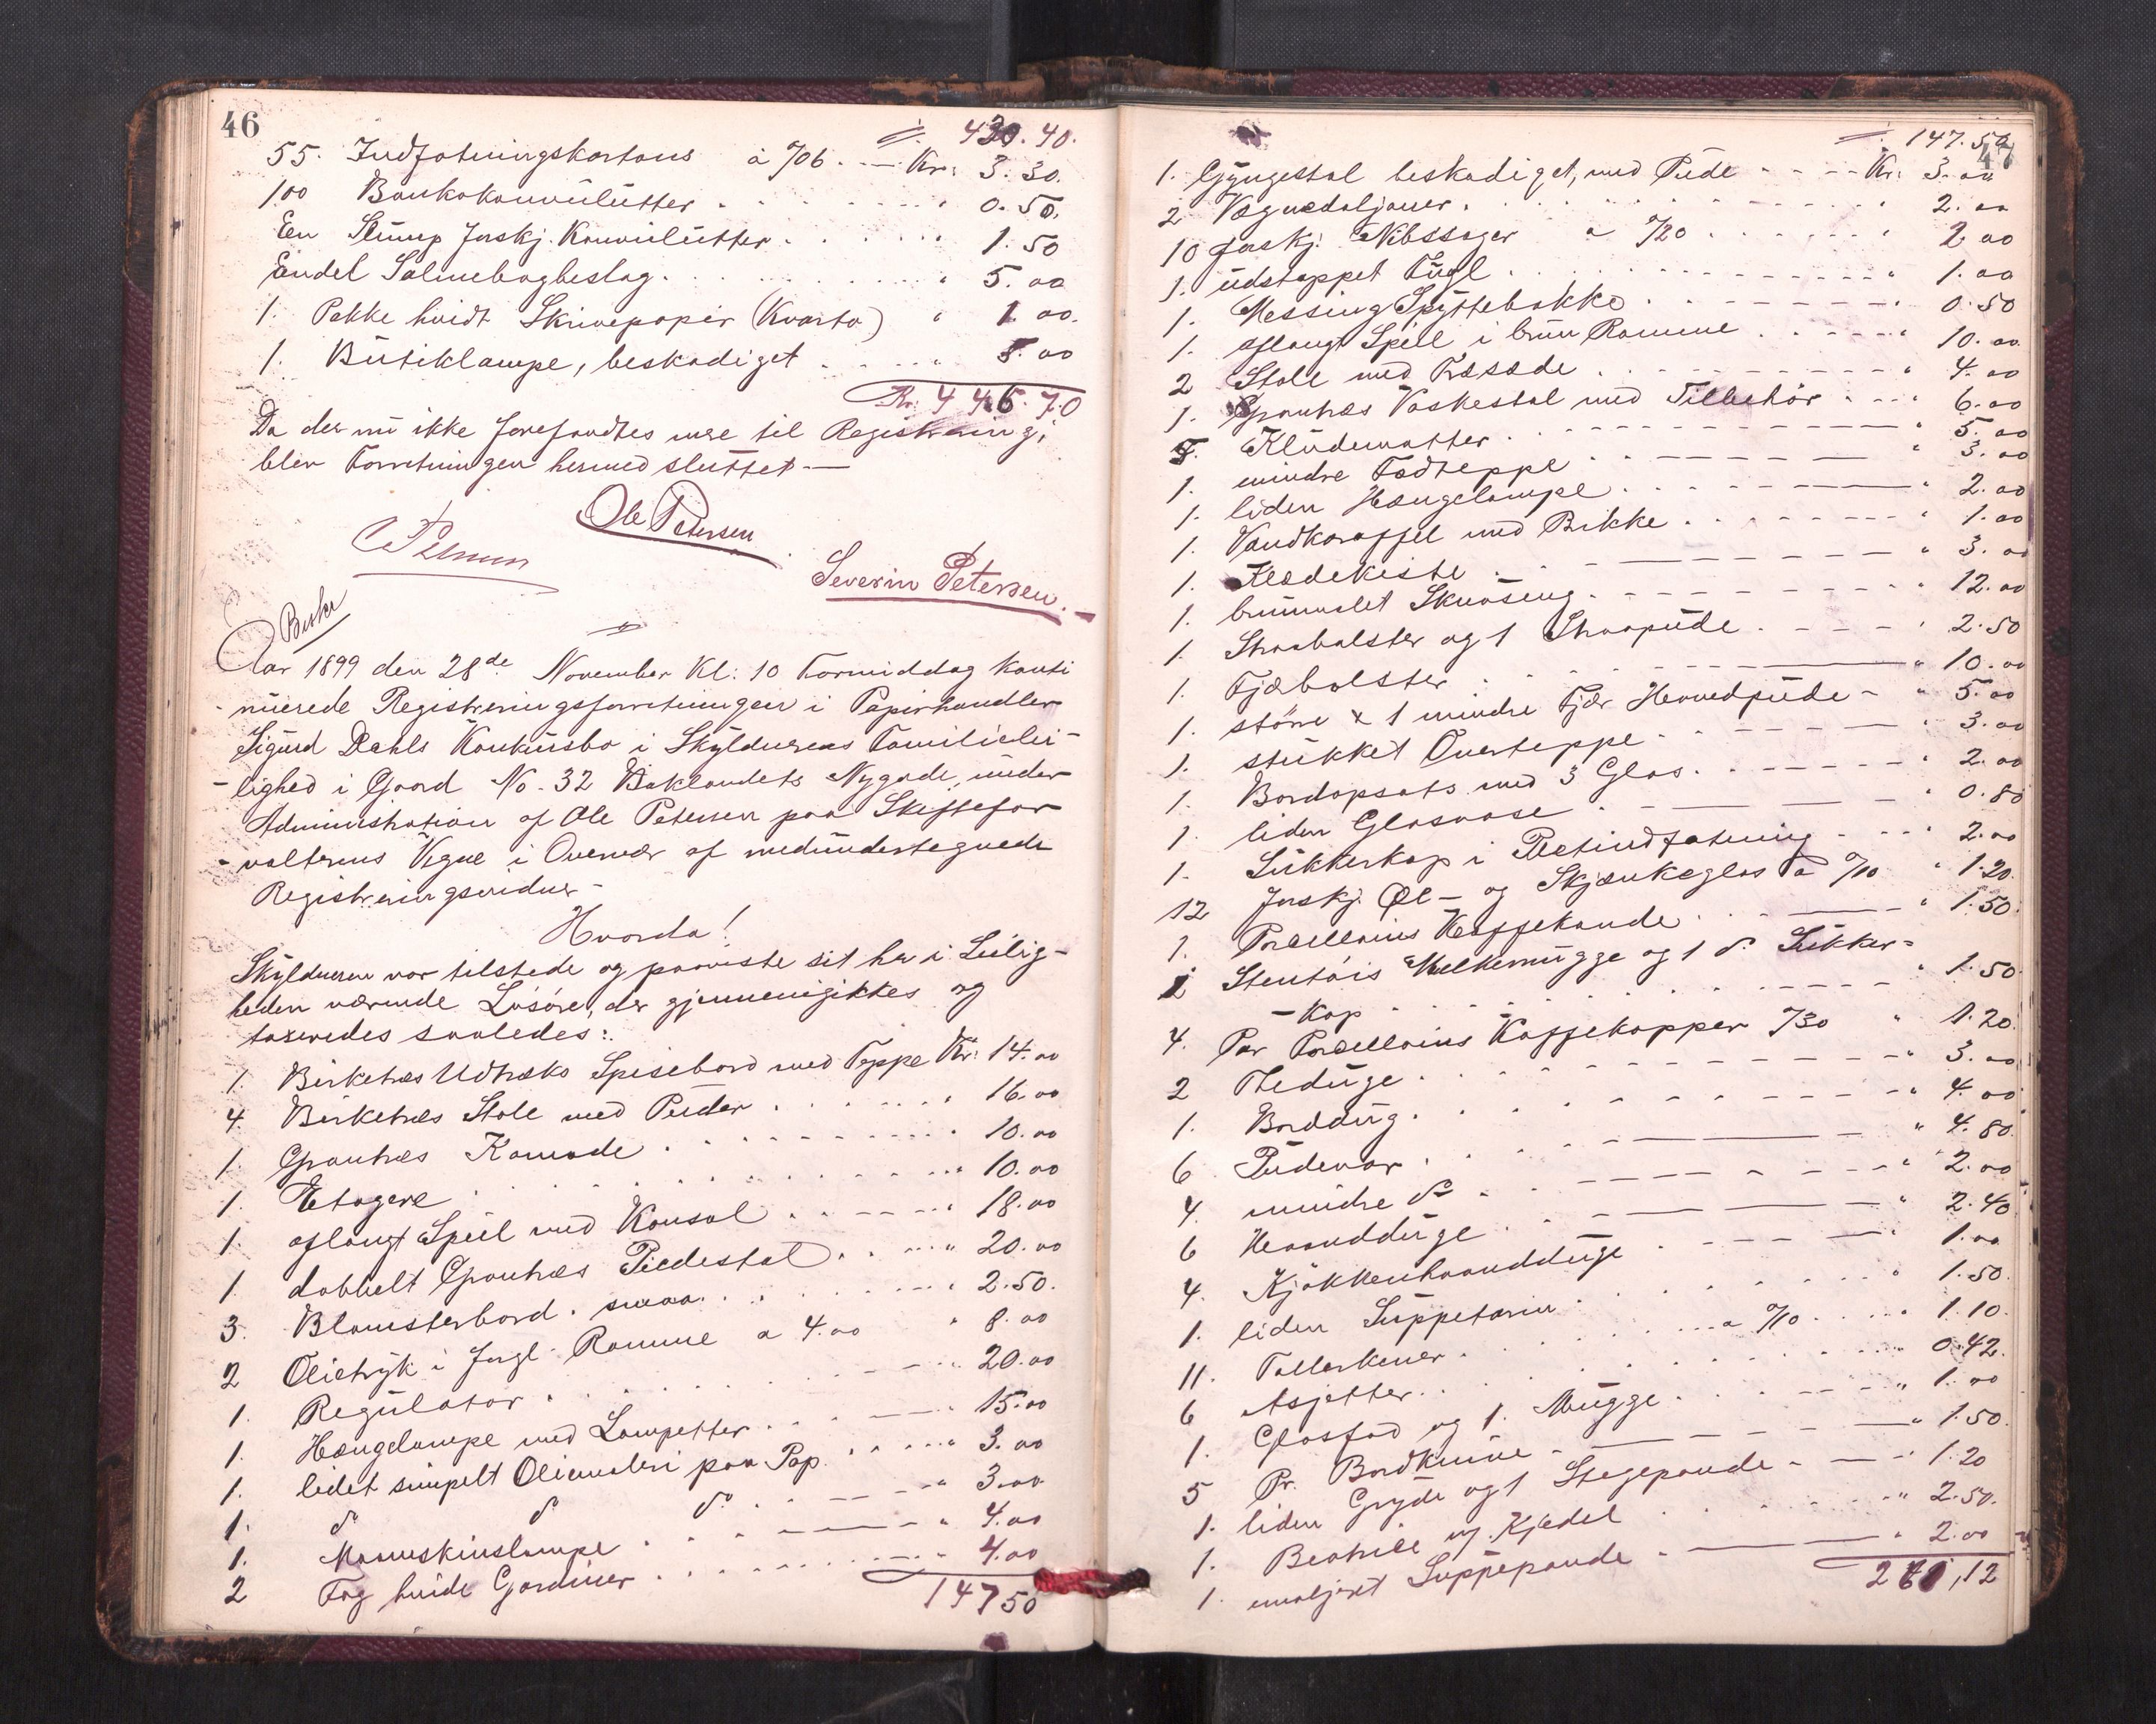 46
430.40.
55. Indfatningskartons à %06. — Kr: 3.30.
100 Bankokonvolutter . . . . . . " 0.50.
En Stump forskj. Konvolutter . . . . . 1.50
Endel Salmebogbeslag . . . . . . . " 5.00
1. Pakke hvidt Skrivepapir (Kvarto) " 1.00.
1. Butiklampe, beskadiget . . . . . . 5.00
Kr: 446.70
Da der nu ikke forefandtes mere til Registrering,
blev Forretningen hermed sluttet —
Ole Petersen
Severin Petersen.
Aar 1899 den 28de November Kl: 10 Formiddag konti
-nuerede Registreringsforretningen i Papirhandler
Sigurd Dahls Konkursbo i Skyldnerens Familielei-
-lighed i Gaard No. 32 Baklandets Nygade, under
Administration af Ole Petersen paa Skiftefor
-valterens Vegne i Overvær af medundertegnede
Registreringsvidner-
Hvorda!
Skyldneren var tilstede og paaviste sit her i Leilig-
heden værende Løsøre, der gjennemgikkes og
taxeredes saaledes:.
1. Birketræs Udtræks Spisebord med Teppe Kr: 14.00
4. Birketræs Stole med Puder . . . . . . . 16.00
1. Grantræs Komode . . . . . . . . 10.00
1. Etagere . . . . . . . . . . " 10.00
1. aflangt Speil med Konsol . . . . . 18.00
1 dobbelt Grantræs Piedestal . . . " 20.00
3. Blomsterbord. smaa . . . . . . . . 2.50.
2 Olietryk i forgl. Ramme a 4.00 " 8.00
1. Regulator . . . . . . . . . 20.00
1. Hængelampe med Lampetter . . . 15.00
1. lidet simpelt Oliemaleri paa Pap . . . . 3.00
1. do do do . . . . " 3.00
1. Maaneskinslampe . . . . . . " 4.00
2 Fag hvide Gardiner . . . . . . . 4.00
147 50
147.50
47
1. Gyngestol beskadiget, med Pude - - - Kr: 3.00
2 Vægmedaljoner . . . . . . . . 2.00
10 forskj. Nibssager a %20 . . . . . 2.00
1. udstoppet Fugl . . . . . . . . " 1.00
1. Messing Spyttebakke . . . . . . . 0.50
1. aflangt Speil i brun Ramme . . . . . 10.00
2 Stole med Træsæde . . . . . . . " 4.00
1. Grantræs Vaskestol med Tilbehør - - " 6.00
5. Kludematter . . . . . . . . 5.00
1. mindre Fodteppe . . . . . . " 3.00
1. liden Hængelampe . . . . . . " 2.00
1. Vandkaraffel med Brikke . . . . . " 1.00
1. Klædekiste . . . . . . . . " 3.00
1. brunmalet Skuvseng . . . . . . " 12.00
1. Straabolster og 1 Straapude . . . . " 2.50
1. Fjæbolster . . . . . . . . " 10.00
1. større & 1 mindre Fjær Hovedpude - " 5.00
1. stukket Overteppe . . . . . . . 3.00
1. Bordopsats med 3 Glas . . . . . . " 2.00
1. liden Glasvase . . . . . . . " 0.80
1. Sukkerkop i Pletindfatning . . . . 2.00
12 forskj. Øl- og Skjænkeglas à %10 " 1.20.
1. Porcellains Kaffekande . . . . . " 1.50.
1 Stentøis Melkemugge og 1 do Sukker-
-kop . . . . . . . . . . " 1.50.
4. Par Porcellains Kaffekopper %30 " 1.20.
2 Theduge . . . . . . . . . " 3.00
1. Borddug . . . . . . . . . " 4.00
6 Pudevar . . . . . . . . " 4.80.
4. mindre do - . . . . . . . " 2.00
6 Haandduge . . . . . . . " 2.40
4. Kjøkkenhaandduge . . . . . . 1.00
1. liden Suppeterrin . . . . . . " 1.50.
11. Tallerkener . . . . . . a %10 . . . " 1.10.
6 Asjetter . . . . . . . . . 0.42.
1. Glasfad og 1. Mugge . . . . . " 1.00
5 Pr. Bordknive - . . . . . . " 1.50.
1. liden Gryde og 1 Stegepande - - - " 1.20
1. Beatrice m. Kjedel . . . . . . " 2.50.
1. emaljeret Suppepande - . . . . " 2.00
261,12